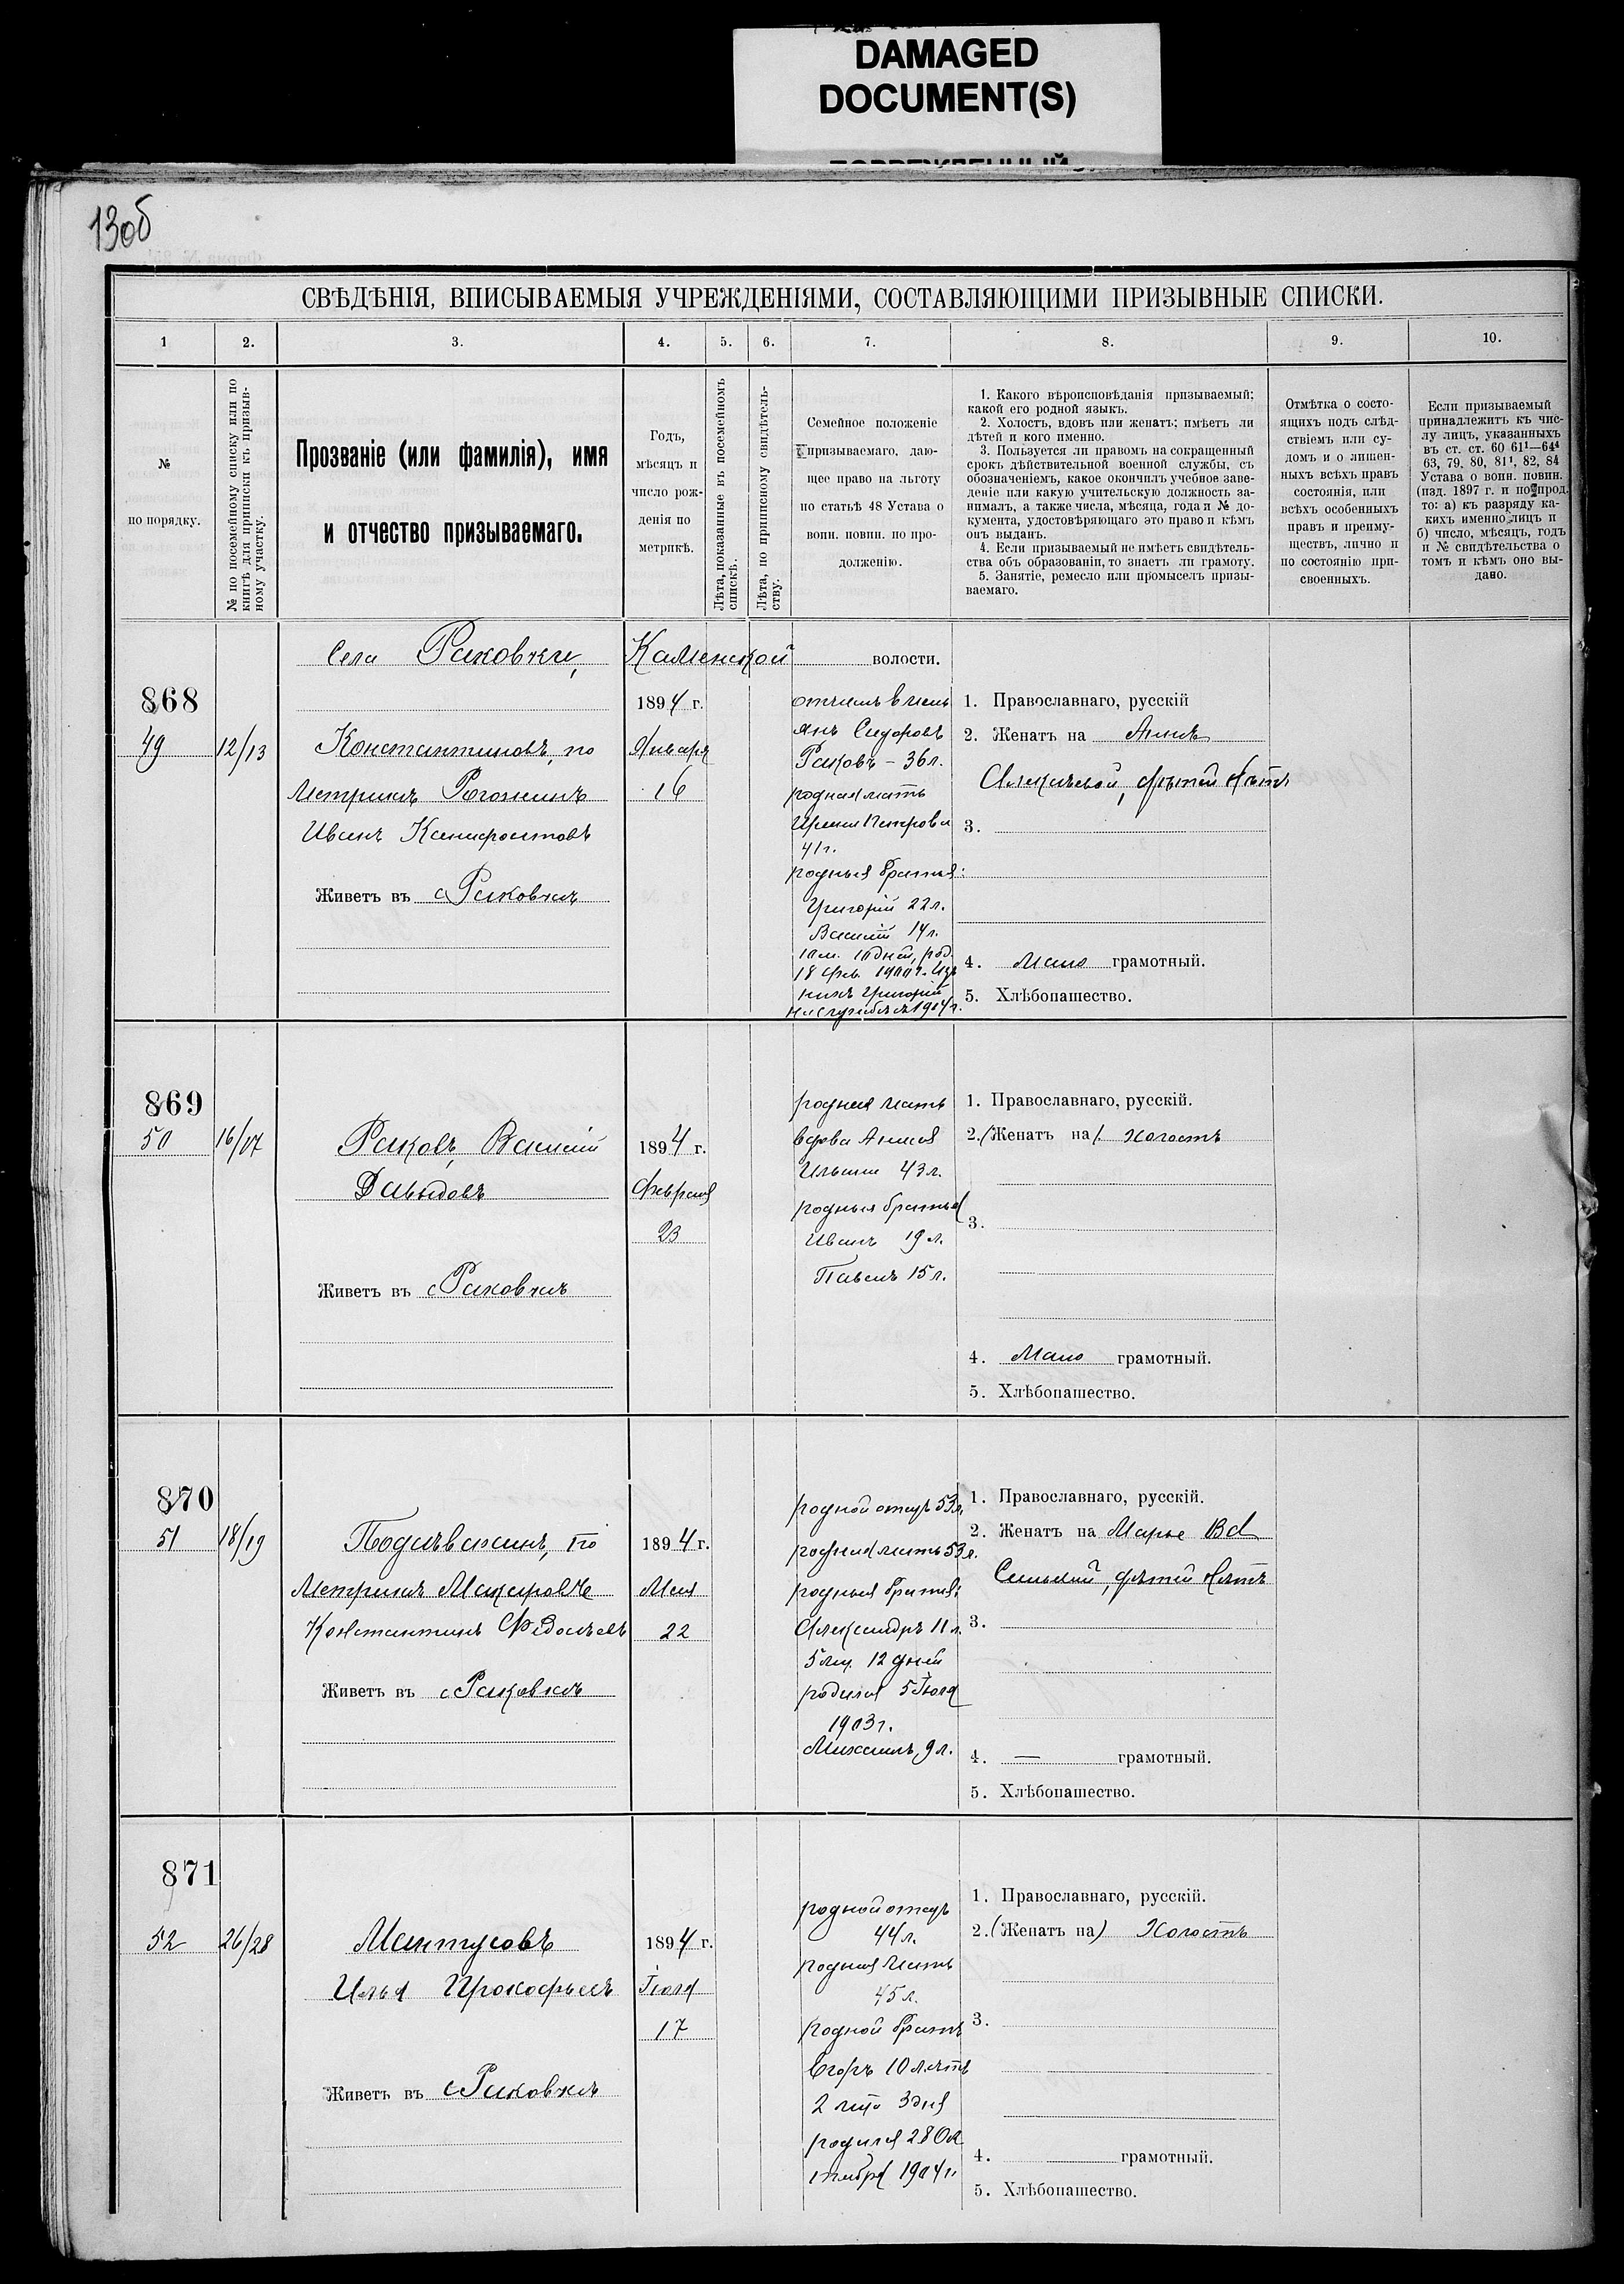 DAMAGED
DOCUMENT(S)
130б
СВѢДѢНІЯ, ВПИСЫВАЕМЫЯ УЧРЕЖДЕНІЯМИ, СОСТАВЛЯЮЩИМИ ПРИЗЫВНЫЕ СПИСКИ.
1 2. 3. 4. 5. 6. 7. 8. 9. 10.
№
по порядку.
№ по посемейному списку или по
книгѣ для приписки къ призыв-
ному участку.
Прозваніе (или фамилія), имя
и отчество призываемаго.
Годъ,
мѣсяцъ и
число рож-
денія по
метрикѣ.
Лѣта, показанные въ посемейномъ
спискѣ.
Лѣта, по приписному свидѣтель-
ству.
Семейное положеніе
призываемаго, даю-
щее право на льготу
по статьѣ 48 Устава о
воин. повин. по про-
долженію.
1. Какого вѣроисповѣданія призываемый;
какой его родной языкъ.
2. Холостъ, вдовъ или женатъ; имѣетъ ли
дѣтей и кого именно.
3. Пользуется ли правомъ на сокращенный
срокъ дѣйствительной военной службы, съ
обозначеніемъ, какое окончилъ учебное заве-
деніе или какую учительскую должность за-
нималъ, а также числа, мѣсяца, года и № до-
кумента, удостовѣряющаго это право и кѣмъ
онъ выданъ.
4. Если призываемый не имѣетъ свидѣтель-
ства объ образованіи, то знаетъ ли грамоту.
5. Занятіе, ремесло или промыселъ призы-
ваемаго.
Отмѣтка о состо-
ящихъ подъ слѣд-
ствіемъ или су-
домъ и о лишен-
ныхъ всѣхъ правъ
состоянія, или
всѣхъ особенныхъ
правъ и преиму-
ществъ, лично и
по состоянію при-
своенныхъ.
Если призываемый
принадлежитъ къ чис-
лу лицъ, указанныхъ
въ ст. ст. 60 61¹—64⁴
63, 79, 80, 81¹, 82, 84
Устава о воин. повин.
(изд. 1897 г. и по прод.
то: а) къ разряду ка-
кихъ именно лицъ и
б) число, мѣсяцъ, годъ
и № свидѣтельства о
томъ и кѣмъ оно вы-
дано.
Села Раковки, Каменской волости.
868
49 12/13
Константиновъ, по
Метрикѣ Рогожинъ
Иванъ
Живетъ въ с Раковкѣ
1894 г.
Января
16
отчимъ
Сидоровъ
Раковъ - 36 л.
родная мать
Ирина Петрова
41 г.
родные братья:
Григорій 22 л.
Василій 14 л.
10 м. 10 дней, род.
18 Фев. 1900 г.
Григорій
1914 г.
1. Православнаго, русскій
2. Женатъ на Аннѣ
Алексѣевой, дѣтей нѣтъ
3.
4. Мало грамотный.
5. Хлѣбопашество.
869
50 16/17
Раковъ, Василій
Давыдовъ
Живетъ въ с Раковкѣ
1894 г.
Февраля
23
родная мать
вдова Анисья
Ильина 43 л.
родные братья
Иванъ 19 л.
Павелъ 15 л.
1. Православнаго, русскій.
2. (Женатъ на). холостъ
3.
4. Мало грамотный.
5. Хлѣбопашество.
870
51 18/19
по
Метрикѣ Макаровъ
Константинъ Федосѣевъ
Живетъ въ с Раковкѣ
1894 г.
Мая
22
родной отецъ 53 л.
родная мать 53 л.
родные братья:
Александръ 11 л.
5 мц. 12 дней
родился 5 Іюля
1903 г.
Михаилъ, 9 л.
1. Православнаго, русскій.
2. Женатъ на Марье Ва
сильевой, дѣтей нѣтъ
3.
4. — грамотный.
5. Хлѣбопашество.
871
52 26/28
Мантусовъ
Илья Прокофьевъ
Живетъ въ с Раковкѣ
1894 г.
Іюля
17
родной отецъ
44 л.
родная мать
45 л.
родной братъ
Егоръ 10 лѣтъ
2 мца 3 дня
родился 28 Ок
тября 1904 г.
1. Православнаго, русскій.
2. (Женатъ на) Холостъ
3.
4. грамотный.
5. Хлѣбопашество.